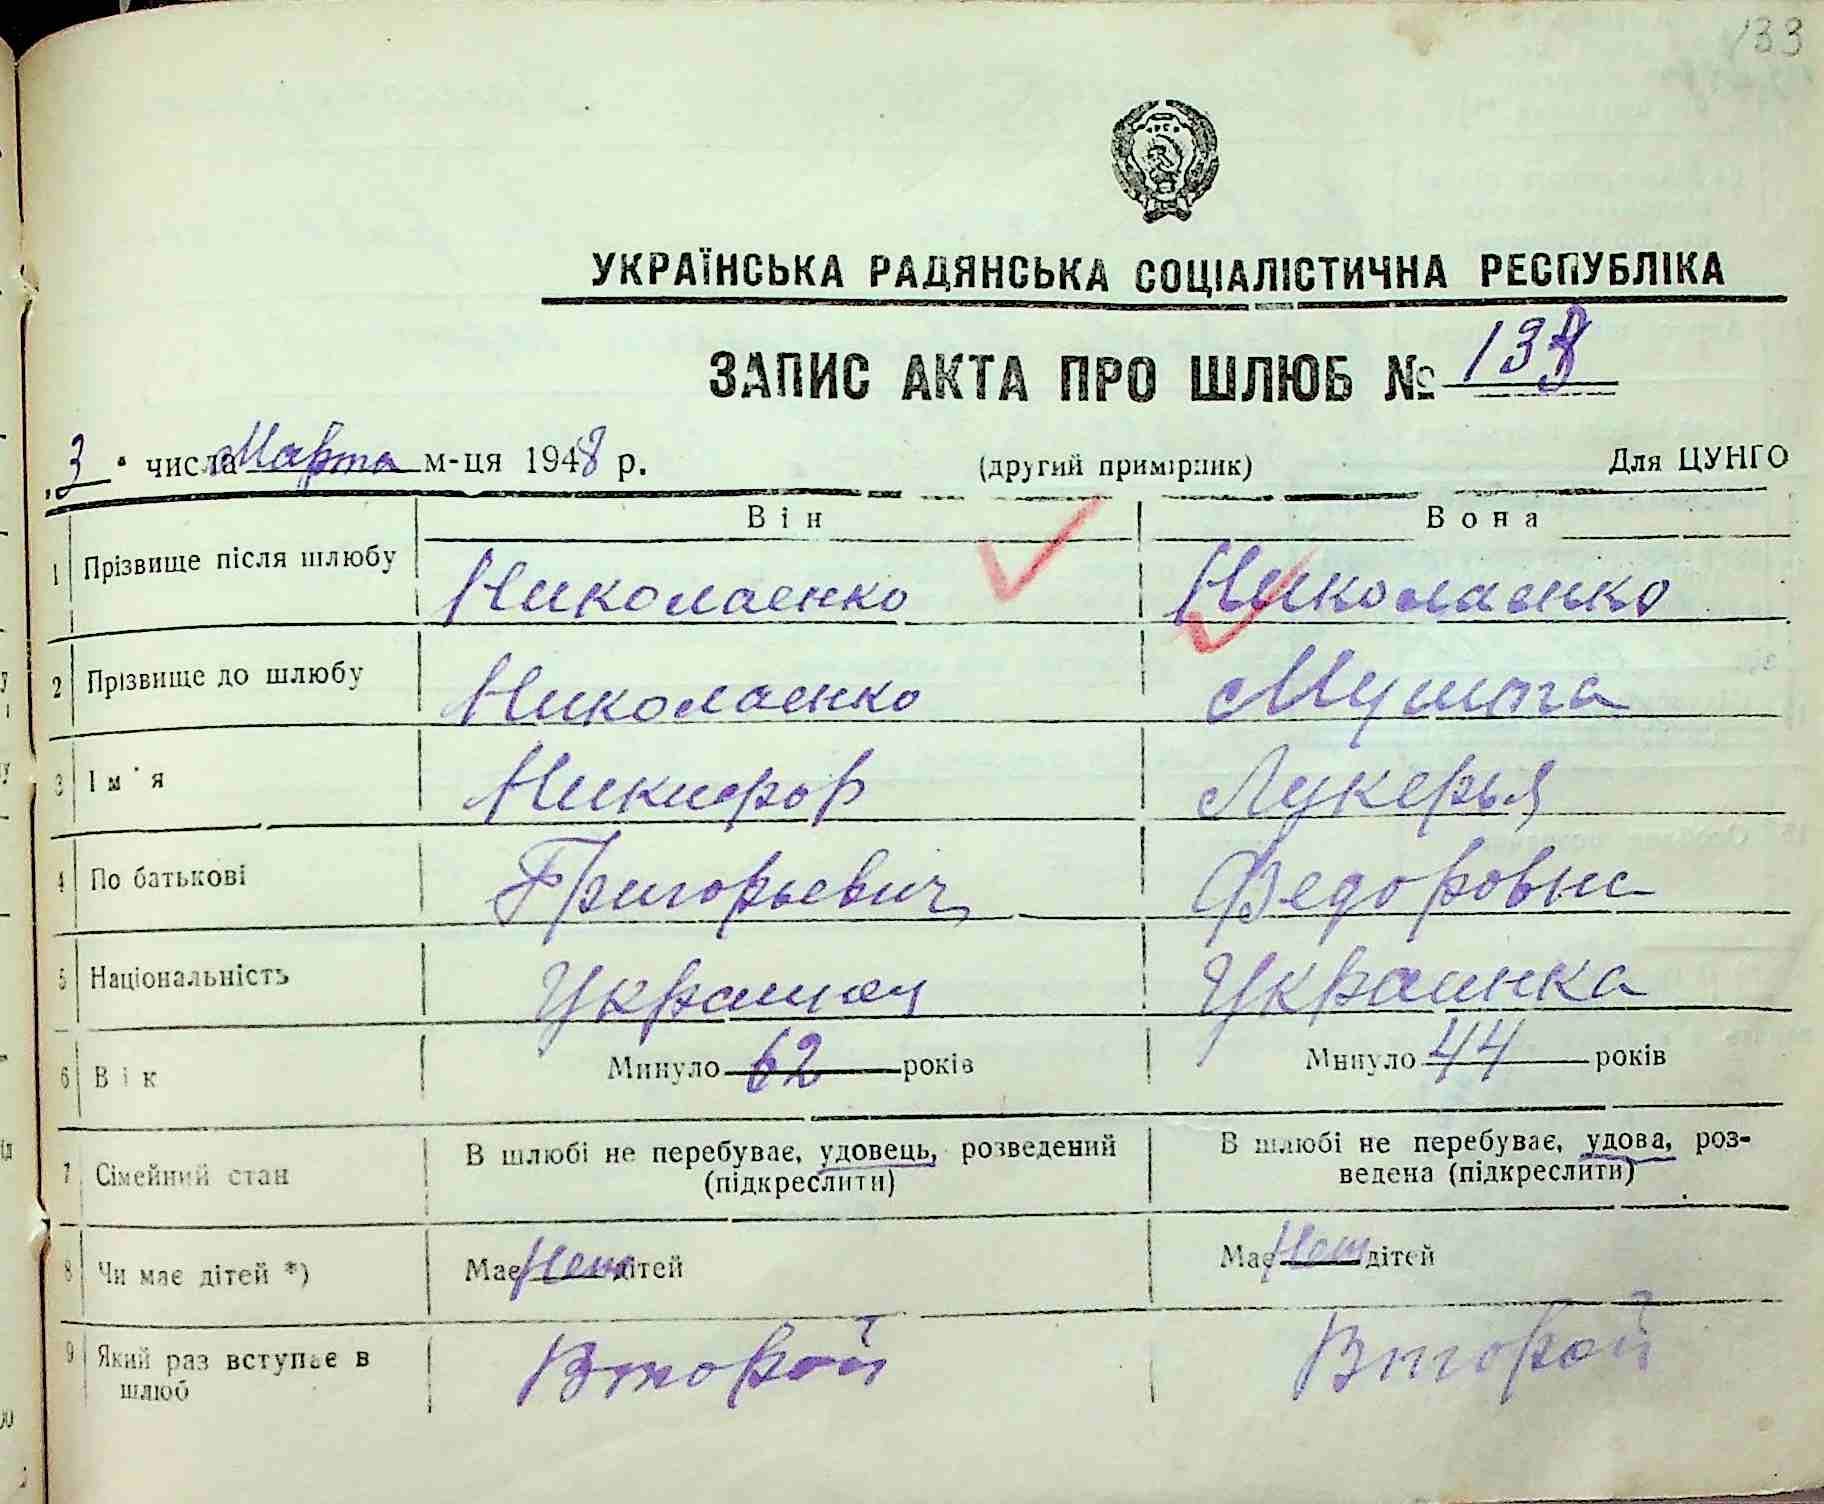 133
УКРАЇНСЬКА РАДЯНСЬКА СОЦІАЛІСТИЧНА РЕСПУБЛІКА
ЗАПИС АКТА ПРО ШЛЮБ № 138
3 числа Марта м-ця 1948 р. (другий примірник) Для ЦУНГО
Він Вона
1 Прізвище після шлюбу Николаенко Николаенко
2 Прізвище до шлюбу Николаенко Мушта
3 Ім'я Никифор Лукерья
4 По батькові Григорьевич Федоровна
5 Національність Украинец Украинка
6 Вік Минуло 62 років Минуло 44 років
7 Сімейний стан В шлюбі не перебуває, удовець, розведений (підкреслити) В шлюбі не перебуває, удова, роз-
ведена (підкреслити)
8 Чи має дітей *) Має Нет дітей Має Нет дітей
9 Який раз вступає в шлюб Второй Второй